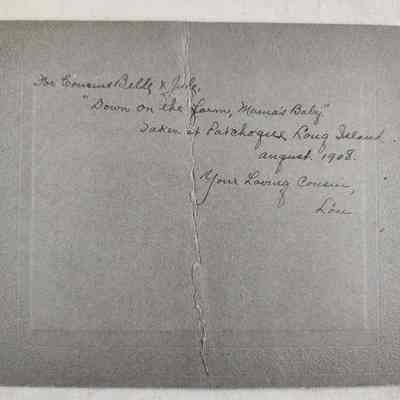 For Cousins Belle &
"Down on the farm, Mama's Baby"
Taken at Patchogue, Long Island.
august 1908.
Your Loving Cousin,
Lou